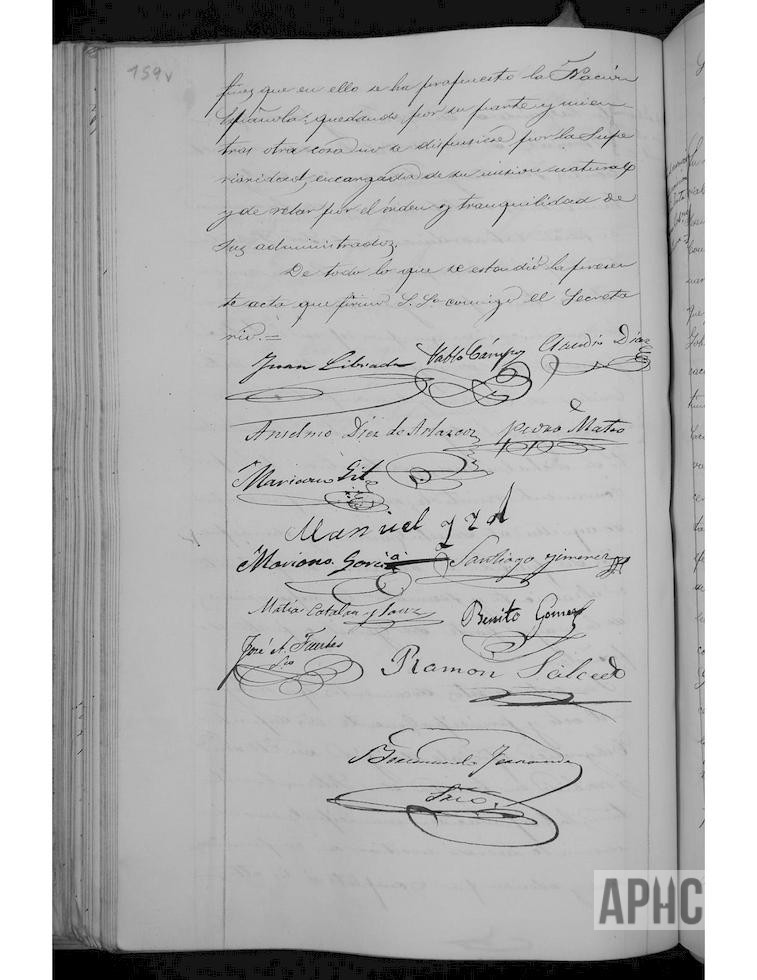 159v
fines que en ello se ha propuesto la Nación
Española, quedando por su parte y mien-
tras otra cosa no se dispusiese por la Supe
rioridad, encargada de su mision natural
y de velar por el órden y tranquilidad de
sus administrados.
De todo lo que se estendió la presen
te acta que firma S. Sa. conmigo el Secreta
rio.=
Juan Librada Pablo Campo Claudio Diaz
Anselmo Diez de Arlazon Pedro Mateo
Mariano Gil
Manuel
Mariano Garcia Santiago Jimenez
Matias Catalan y Sanz Benito Gomez
José A. Fuertes
Sio
Ramon Salcedo
Fernandez
Srio
APHC